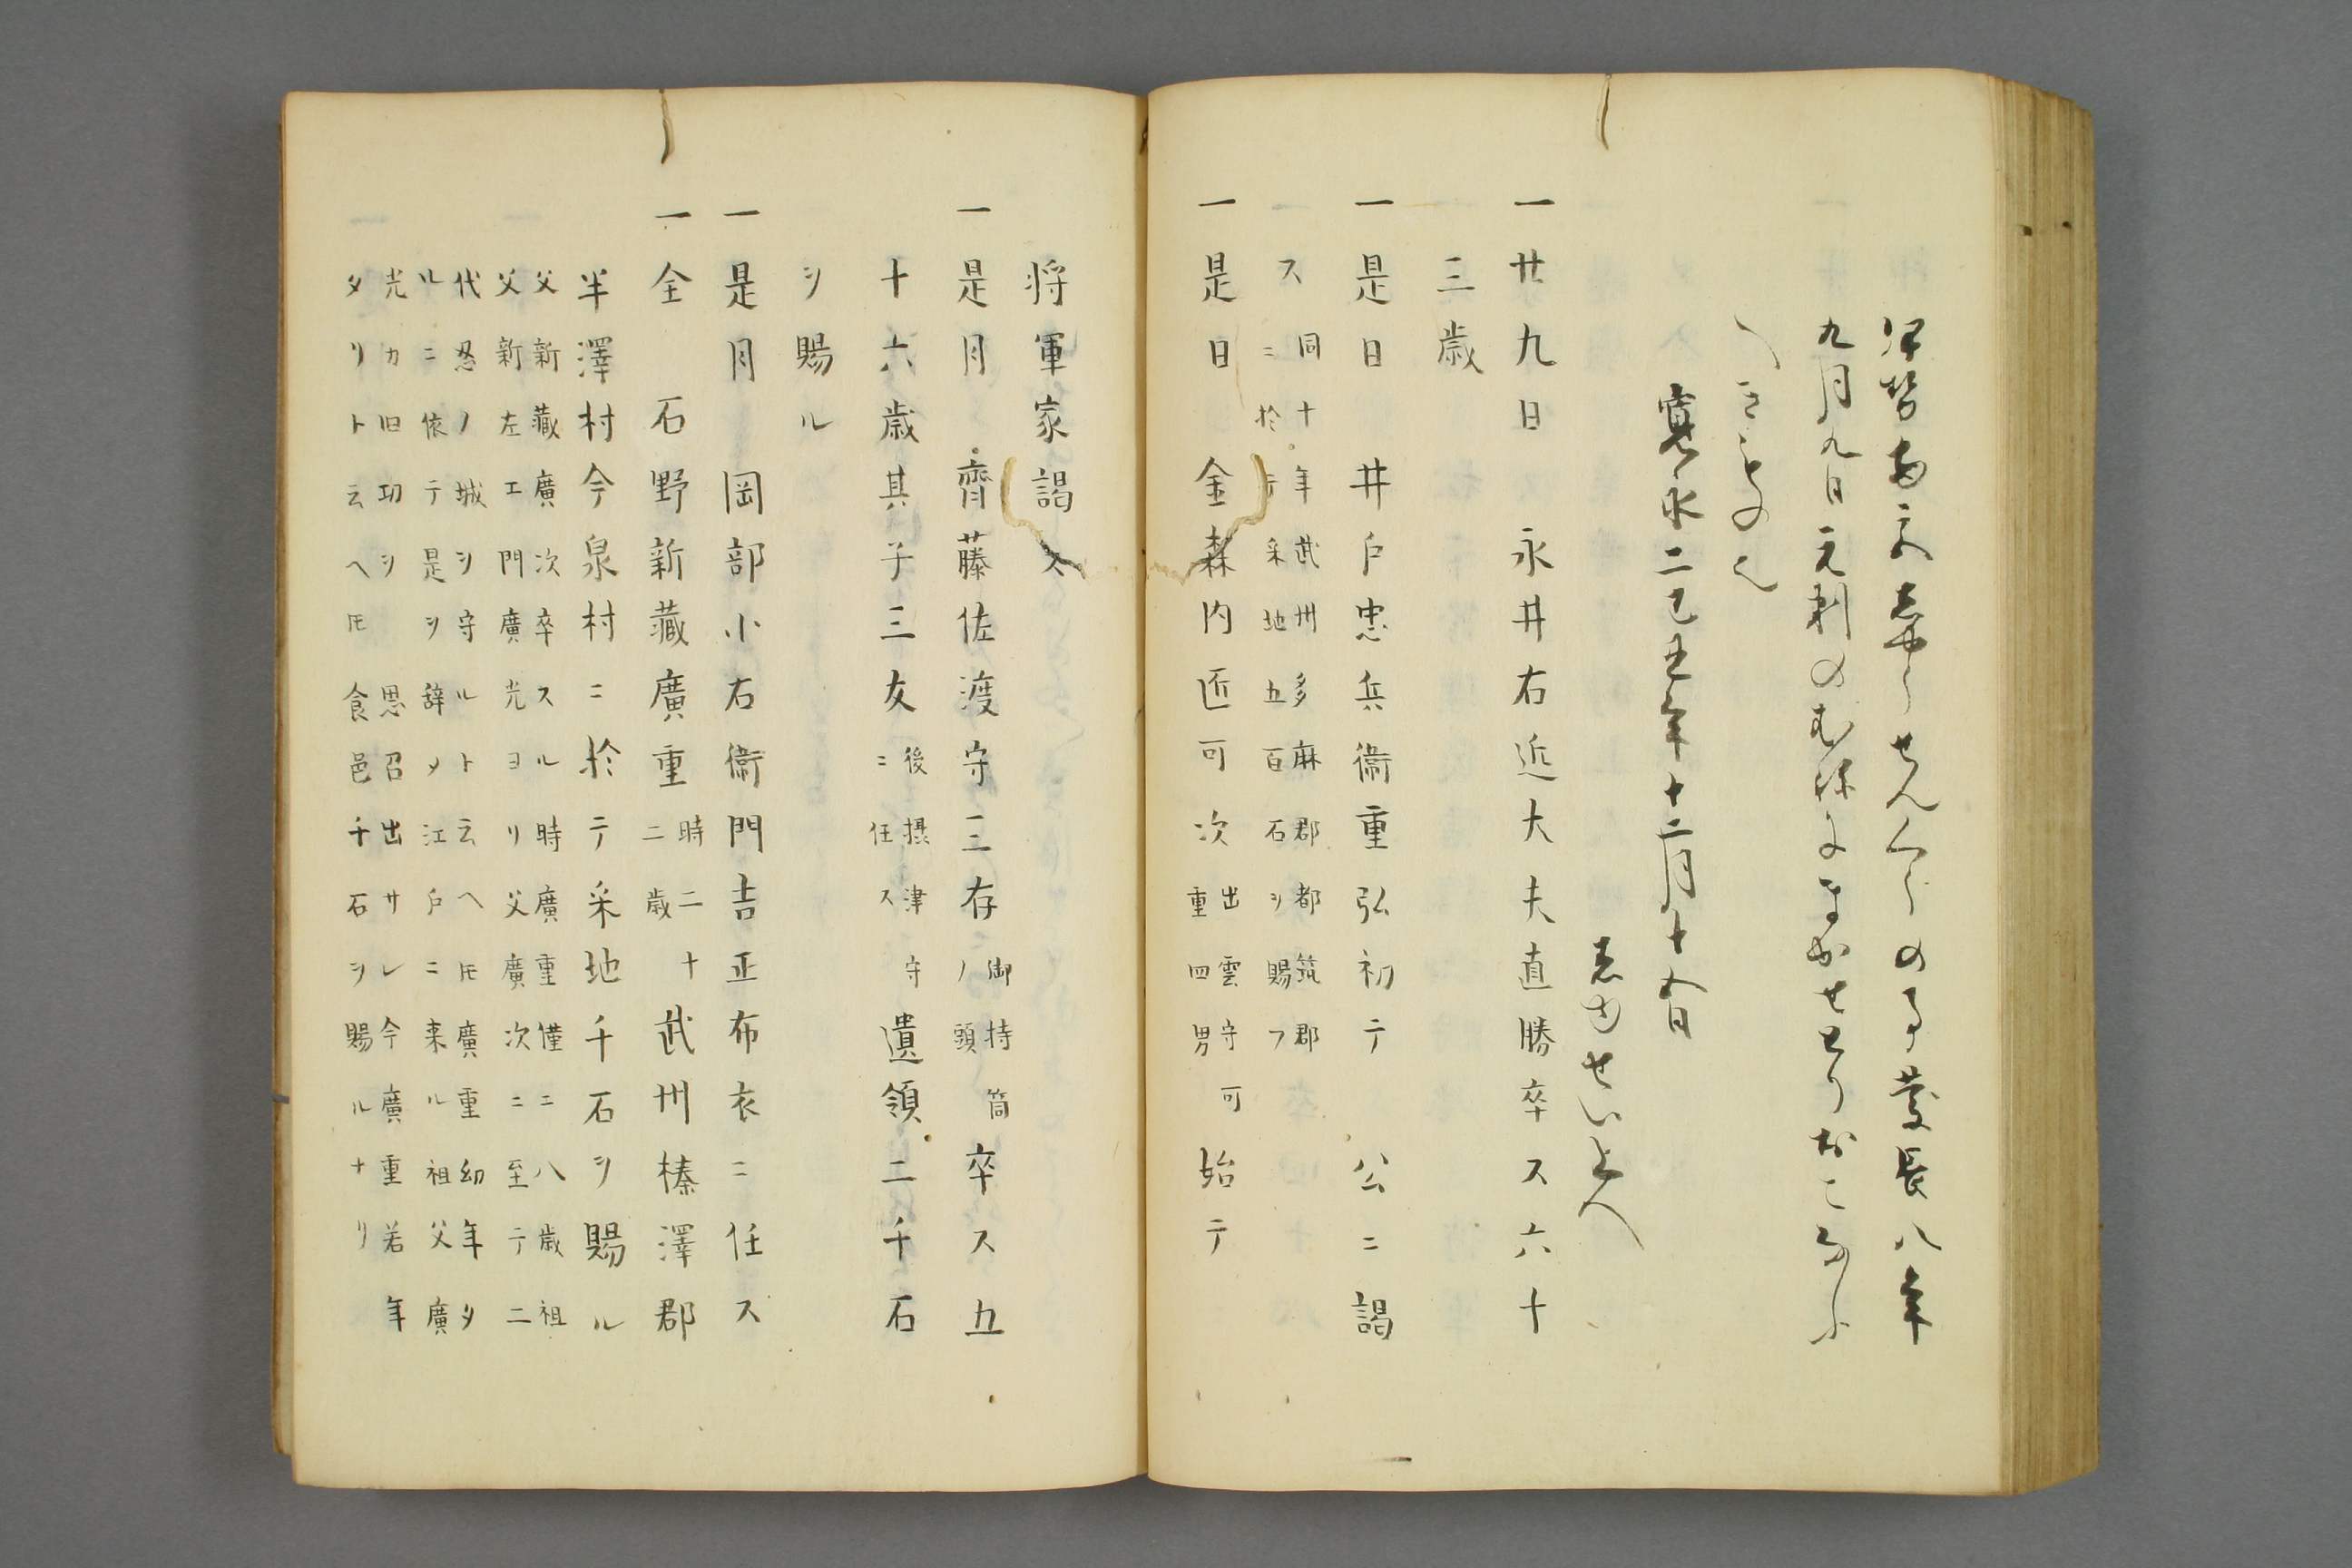 伊勢両宮志やうせんくうの事慶長八年
九月九日元剰のむねにまかせせりおこなふ
へきもの也
寛永二乙丑年十二月十八日
志ゆせい上人
一廿九日 永井右近大夫直勝卒ス六十
三歳
一是日 井戸忠兵衛重弘初テ 公ニ謁
ス同十年武州多麻郡都筑郡
ニ於テ采地五百石ヲ賜フ
一是日 金森内匠可次出雲守可
重四男始テ
将軍家謁ス
一是月 齊藤佐渡守三存御持筒
ノ頭卒ス五
十六歳其子三友後摂津守
ニ任ス遺領二千石
ヲ賜ル
一是月 岡部小右衛門吉正布衣ニ任ス
一仝 石野新藏廣重時二十
二歳武州榛澤郡
半澤村今泉村ニ於テ采地千石ヲ賜ル
父新藏廣次卒スル時廣重僅ニ八歳祖
父新左エ門廣光ヨリ父廣次ニ至テ二
代忍ノ城ヲ守ルト云ヘ𪜈廣重幼年タ
ルニ依テ是ヲ辞メ江戸ニ来ル祖父廣
光カ旧功ヲ思召出サレ今廣重若年
タリト云ヘ𪜈食邑千石ヲ賜ルナリ